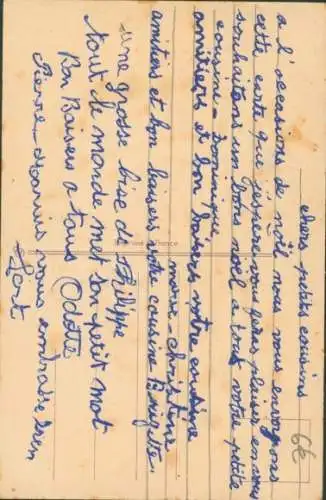 chers petits cousins
a l'occasions de noël nous vous envoyons
cette carte que j'espère vous feras plaisir en vous
souhaitans un bons noël a tous votre petite
cousine - Dominique
amitiers et bon baisers votre cousine
marie-christine
amitiers et bon baisers votre cousine Brigitte.
une grosse bise de Philippe
tout le monde met son petit mot
Bon Baisers a tous Odette
Pierre-Marie vous embrasse bien
fort
6E